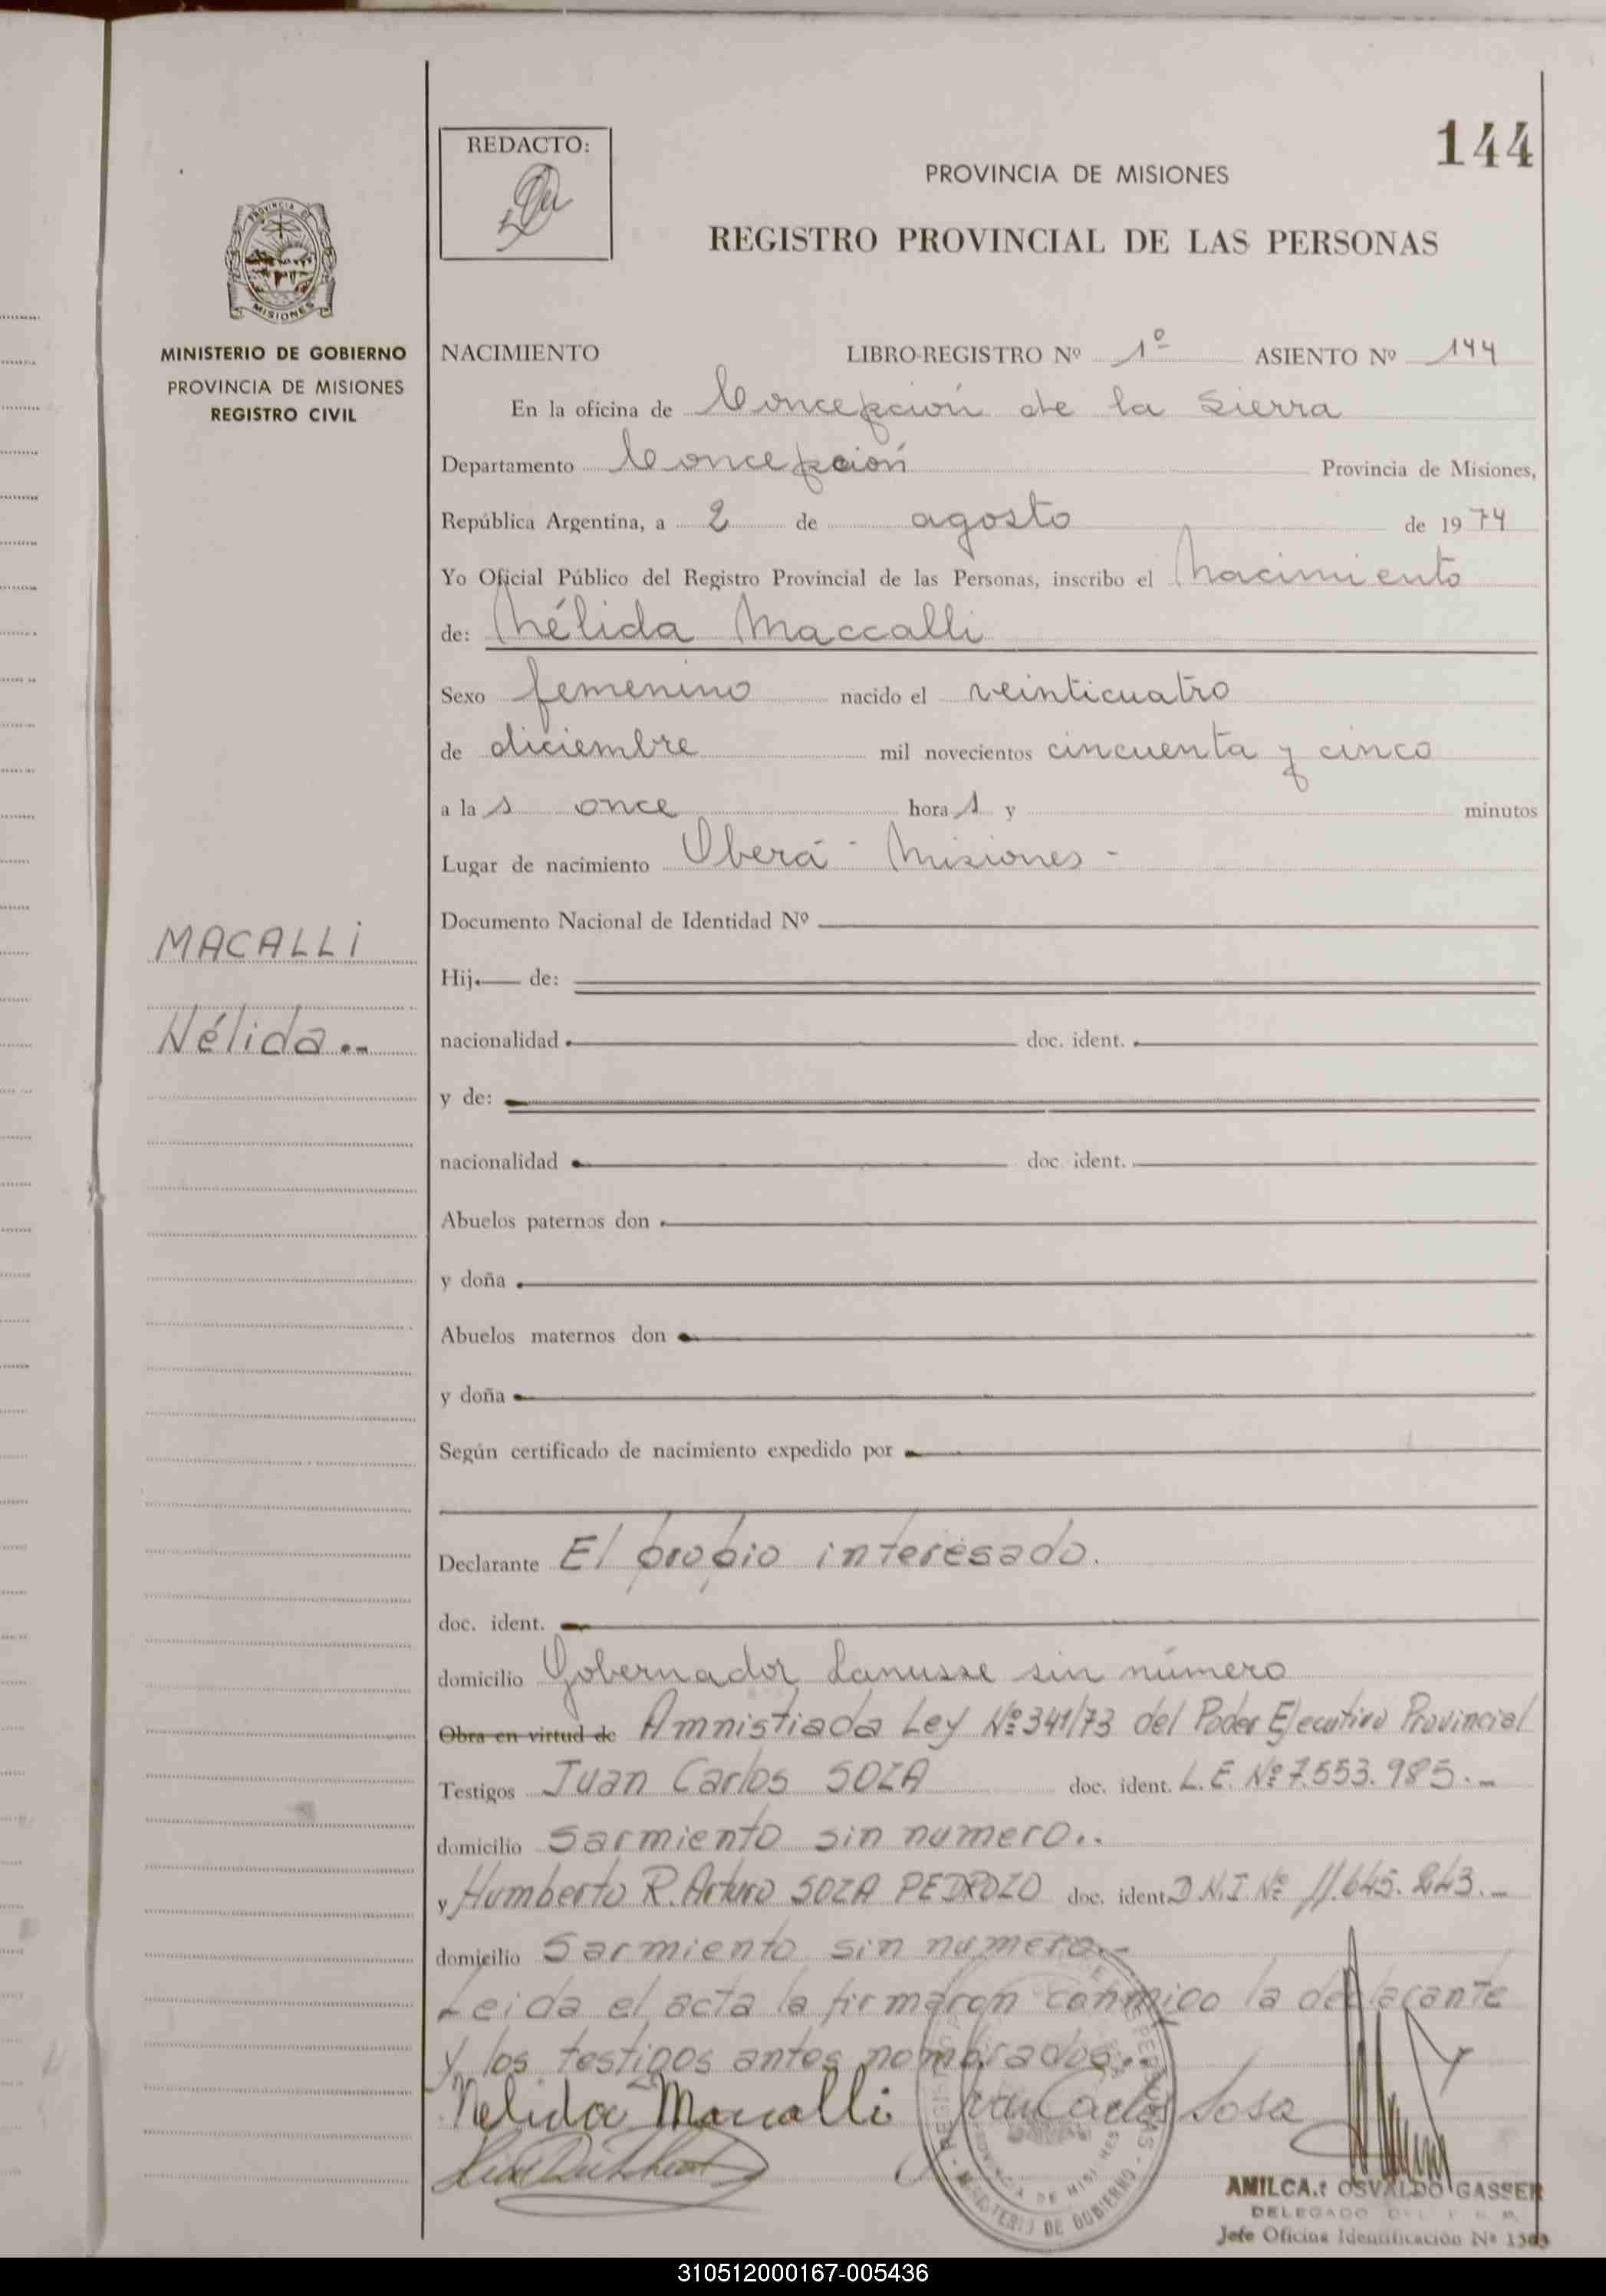 144
REDACTO:
PROVINCIA DE MISIONES
REGISTRO PROVINCIAL DE LAS PERSONAS
PROVINCIA DE
MISIONES
MINISTERIO DE GOBIERNO
PROVINCIA DE MISIONES
REGISTRO CIVIL
MACALLI
Nélida.-
NACIMIENTO LIBRO-REGISTRO Nº 1º ASIENTO Nº 144
En la oficina de Concepción de la Sierra
Departamento Concepción Provincia de Misiones,
República Argentina, a 2 de agosto de 1974
Yo Oficial Público del Registro Provincial de las Personas, inscribo el Nacimiento
de: Nélida Maccalli
Sexo femenino nacido el veinticuatro
de diciembre mil novecientos cincuenta y cinco
a la s once hora s y minutos
Lugar de nacimiento Oberá - Misiones -
Documento Nacional de Identidad Nº
Hij de:
nacionalidad doc. ident.
y de:
nacionalidad doc. ident.
Abuelos paternos don
y doña
Abuelos maternos don
y doña
Según certificado de nacimiento expedido por
Declarante El propio interesado.
doc. ident.
domicilio Gobernador Lanusse sin número
Obra en virtud de Amnistiada Ley Nº 341/73 del Poder Ejecutivo Provincial
Testigos Juan Carlos SOZA doc. ident. L.E. Nº 7.553.985.-
domicilio Sarmiento sin numero..
y Humberto R. Arturo SOZA PEDROZO doc. ident. D.N.I. Nº 11.645.243.-
domicilio Sarmiento sin numero.-
Leida el acta la firmaron conmigo la declarante
y los testigos antes nombrados.-
Nelida Maccalli Juan Carlos Sosa
MINISTERIO DE GOBIERNO
PROVINCIA DE MISIONES
AMILCAR OSVALDO GASSER
DELEGADO
Jefe Oficina Identificación Nº
310512000167-005436